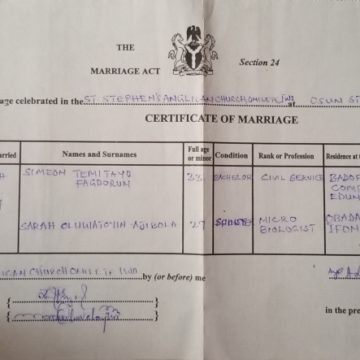 THE
MARRIAGE ACT
Section 24
age celebrated in the ST. STEPHEN'S ANGLICAN CHURCH OKE-IFE, IWO OSUN ST
CERTIFICATE OF MARRIAGE
arried Names and Surnames Full age or minor Condition Rank or Profession Residence at the
SIMEON TEMITAYO FAGDORUN 33 BACHELOR CIVIL SERVICE
SARAH OLUWATOYIN AJIBOLA 27 SPINSTER MICRO BIOLOGIST OBADA
ICAN CHURCH IWO by (or before) me
in the pre